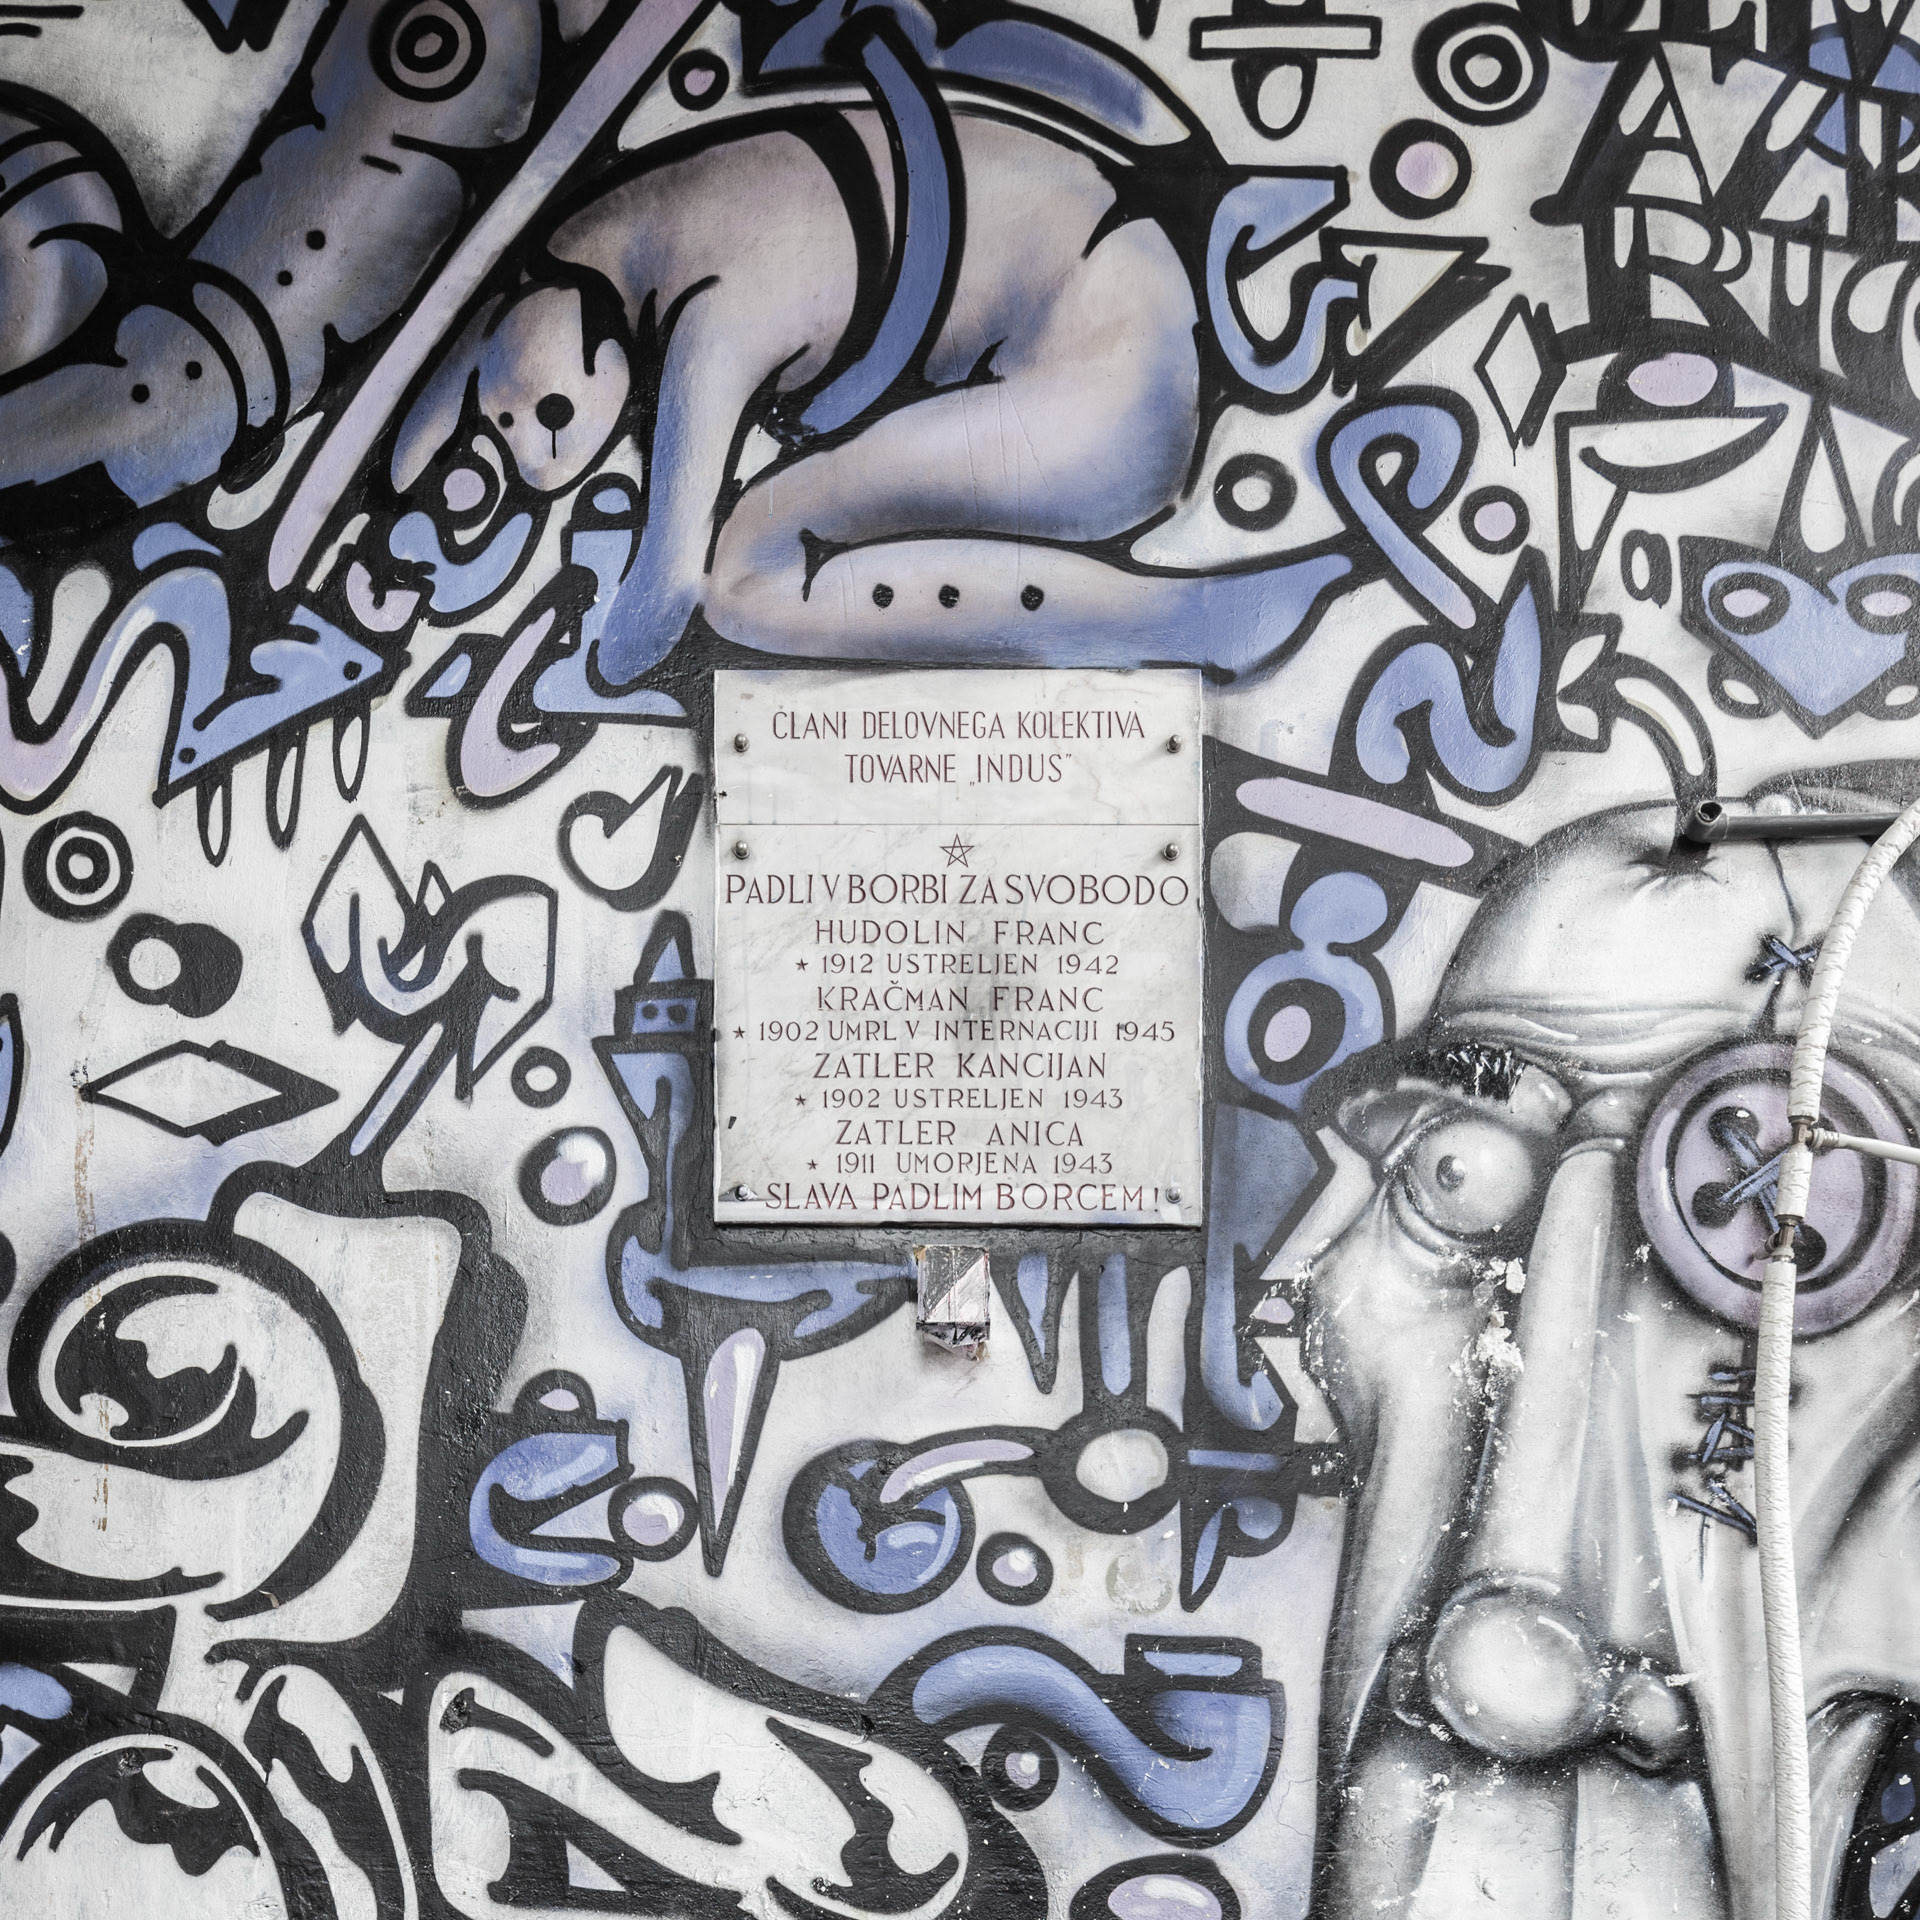 ČLANI DELOVNEGA KOLEKTIVA
TOVARNE „INDUS”
PADLI V BORBI ZA SVOBODO
HUDOLIN FRANC
★ 1912 USTRELJEN 1942
KRAČMAN FRANC
★ 1902 UMRL V INTERNACIJI 1945
ZATLER KANCIJAN
★ 1902 USTRELJEN 1943
ZATLER ANICA
★ 1911 UMORJENA 1943
SLAVA PADLIM BORCEM!